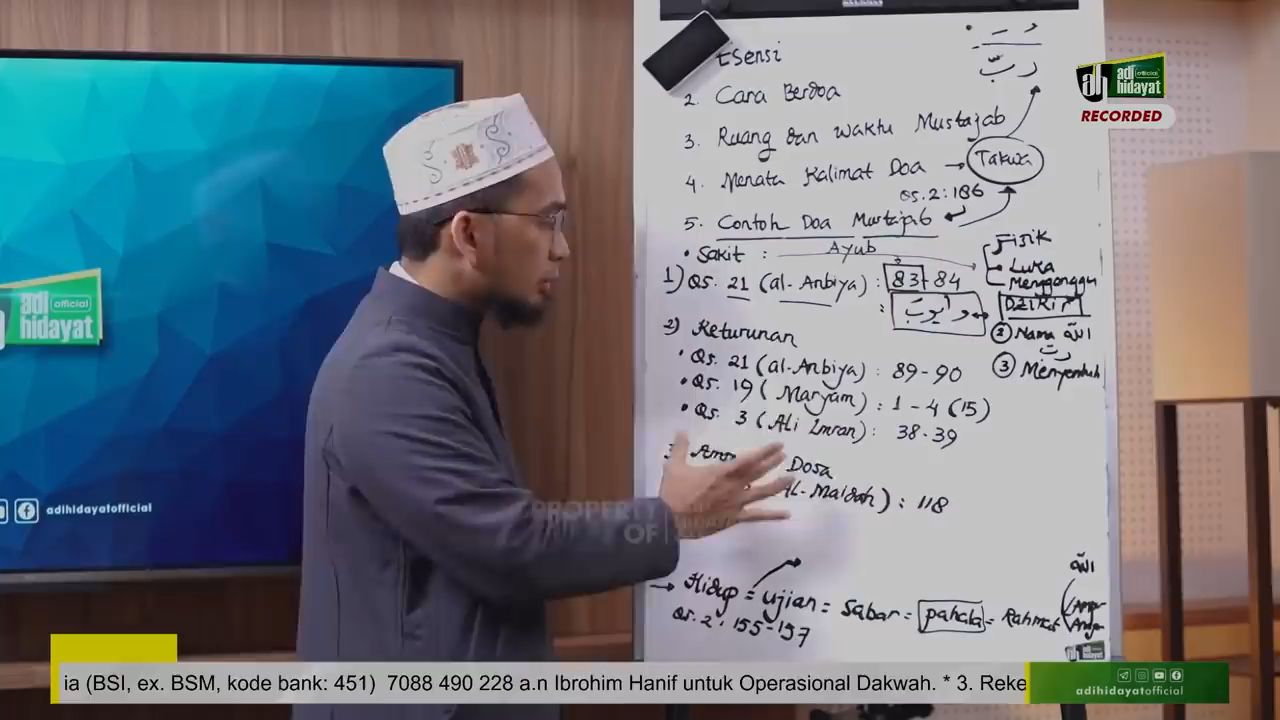 Esensi
2. Cara Berdoa
3. Ruang dan Waktu Mustajab
4. Menata Kalimat Doa → Takwa
QS. 2: 186
5. Contoh Doa Mustajab
• Sakit : Ayub
Fisik
Luka
Mengganggu
1) QS. 21 (al-Anbiya) : 83-84
DZIKIR
2) Nama الله
ربّ
3) Menyentuh
2) Keturunan
• QS. 21 (al-Anbiya) : 89-90
• QS. 19 (Maryam) : 1-4 (15)
• QS. 3 (Ali Imran) : 38-39
Dosa
Al-Maidah) : 118
الله
→ Hidup = ujian = Sabar = pahala = Rahmat
QS. 2 : 155-157
adi official
hidayat
RECORDED
adi official
hidayat
adihidayatofficial
PROPERTY
OF
adi
hidayat
ia (BSI, ex. BSM, kode bank: 451) 7088 490 228 a.n Ibrohim Hanif untuk Operasional Dakwah. * 3. Reke
adihidayatofficial